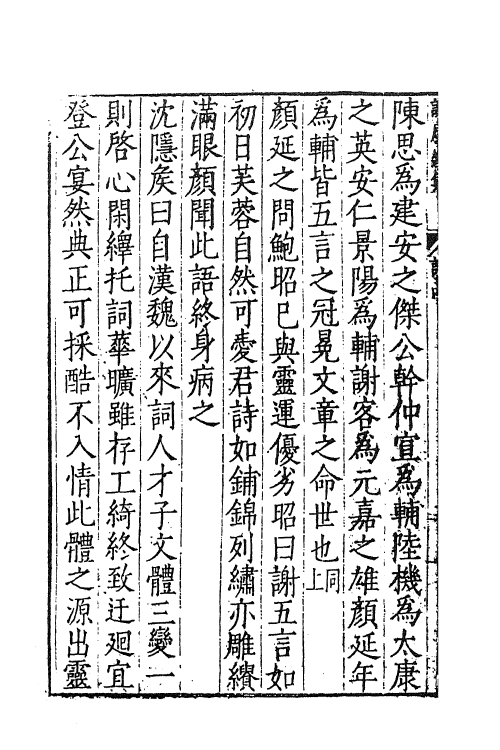 陳思爲建安之傑公幹仲宣爲輔陸機爲太康
之英安仁景陽爲輔謝客爲元嘉之雄顏延年
爲輔皆五言之冠冕文章之命世也同上
顏延之問鮑昭已與靈運優劣昭曰謝五言如
初日芙蓉自然可愛君詩如鋪錦列繡亦雕繢
滿眼顏聞此語終身病之
沈隱矦曰自漢魏以來詞人才子文體三變一
則啓心閑繹托詞華曠雖存工綺終致迂廻宜
登公宴然典正可採酷不入情此體之源出靈